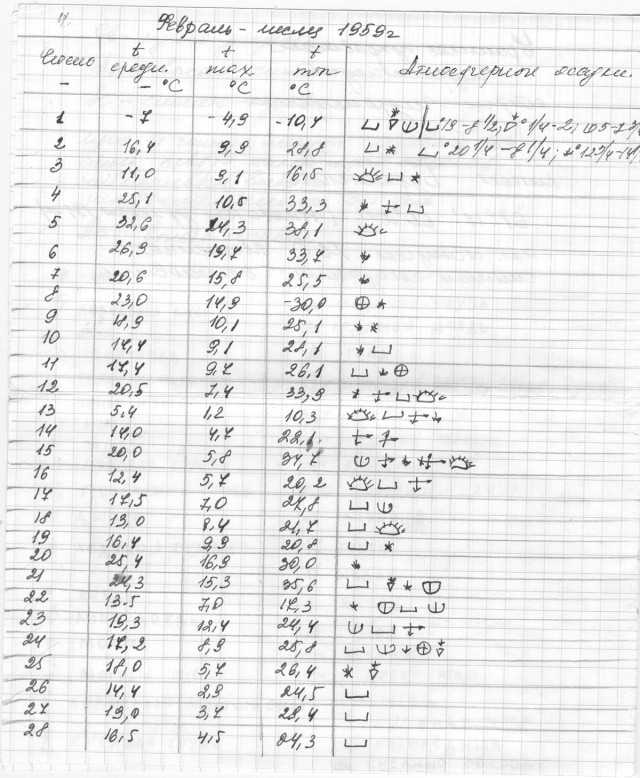 Февраль - месяц 1959г
Число t средн. t max t min Атмосферные осадки.
- - °C °C °C
1 -7 -4,9 -10,4
2 16,4 9,9 28,8
3 11,0 9,1 16,5
4 25,1 10,5 33,3
5 32,6 24,3 38,1
6 26,9 19,7 33,7
7 20,6 15,8 25,5
8 23,0 14,9 -30,0
9 18,9 10,1 25,1
10 14,4 9,1 28,1
11 17,4 9,7 26,1
12 20,5 7,4 33,9
13 5,4 1,2 10,3
14 14,0 4,7 22,1
15 20,0 5,8 34,7
16 12,4 5,7 20,2
17 17,5 7,0 27,8
18 13,0 8,4 21,7
19 16,4 9,9 20,8
20 25,4 16,9 30,0
21 24,3 15,3 35,6
22 13.5 7,0 17,3
23 19,3 12,4 24,4
24 17,2 8,9 25,8
25 18,0 5,7 26,4
26 14,4 2,9 24,5
27 19,0 3,7 28,4
28 16,5 4,5 24,3